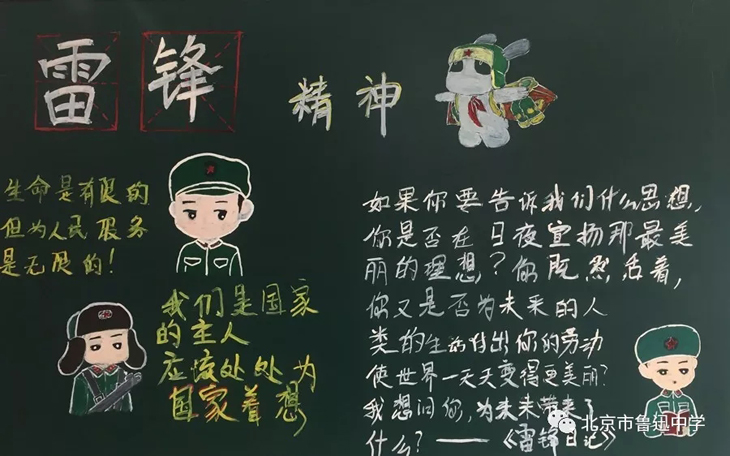 雷锋
精神
生命是有限的
但为人民服务
是无限的！
我们是国家
的主人
应该处处为
国家着想
如果你要告诉我们什么思想，
你是否在日夜宣扬那最美
丽的理想？你既然活着，
你又是否为未来的人
类的生活付出你的劳动
使世界一天天变得更美丽？
我想问你，为未来带来了
什么？——《雷锋日记》
北京市鲁迅中学